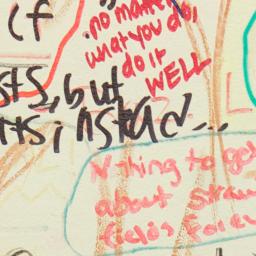 (f
no matter
what you do,
do it
WELL
sts, but
ts, instead...
N thing to get
about straw
fields Forev